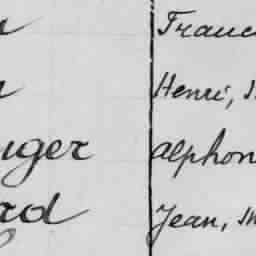 Franc
Henri,
nger Alphon
rd Jean,